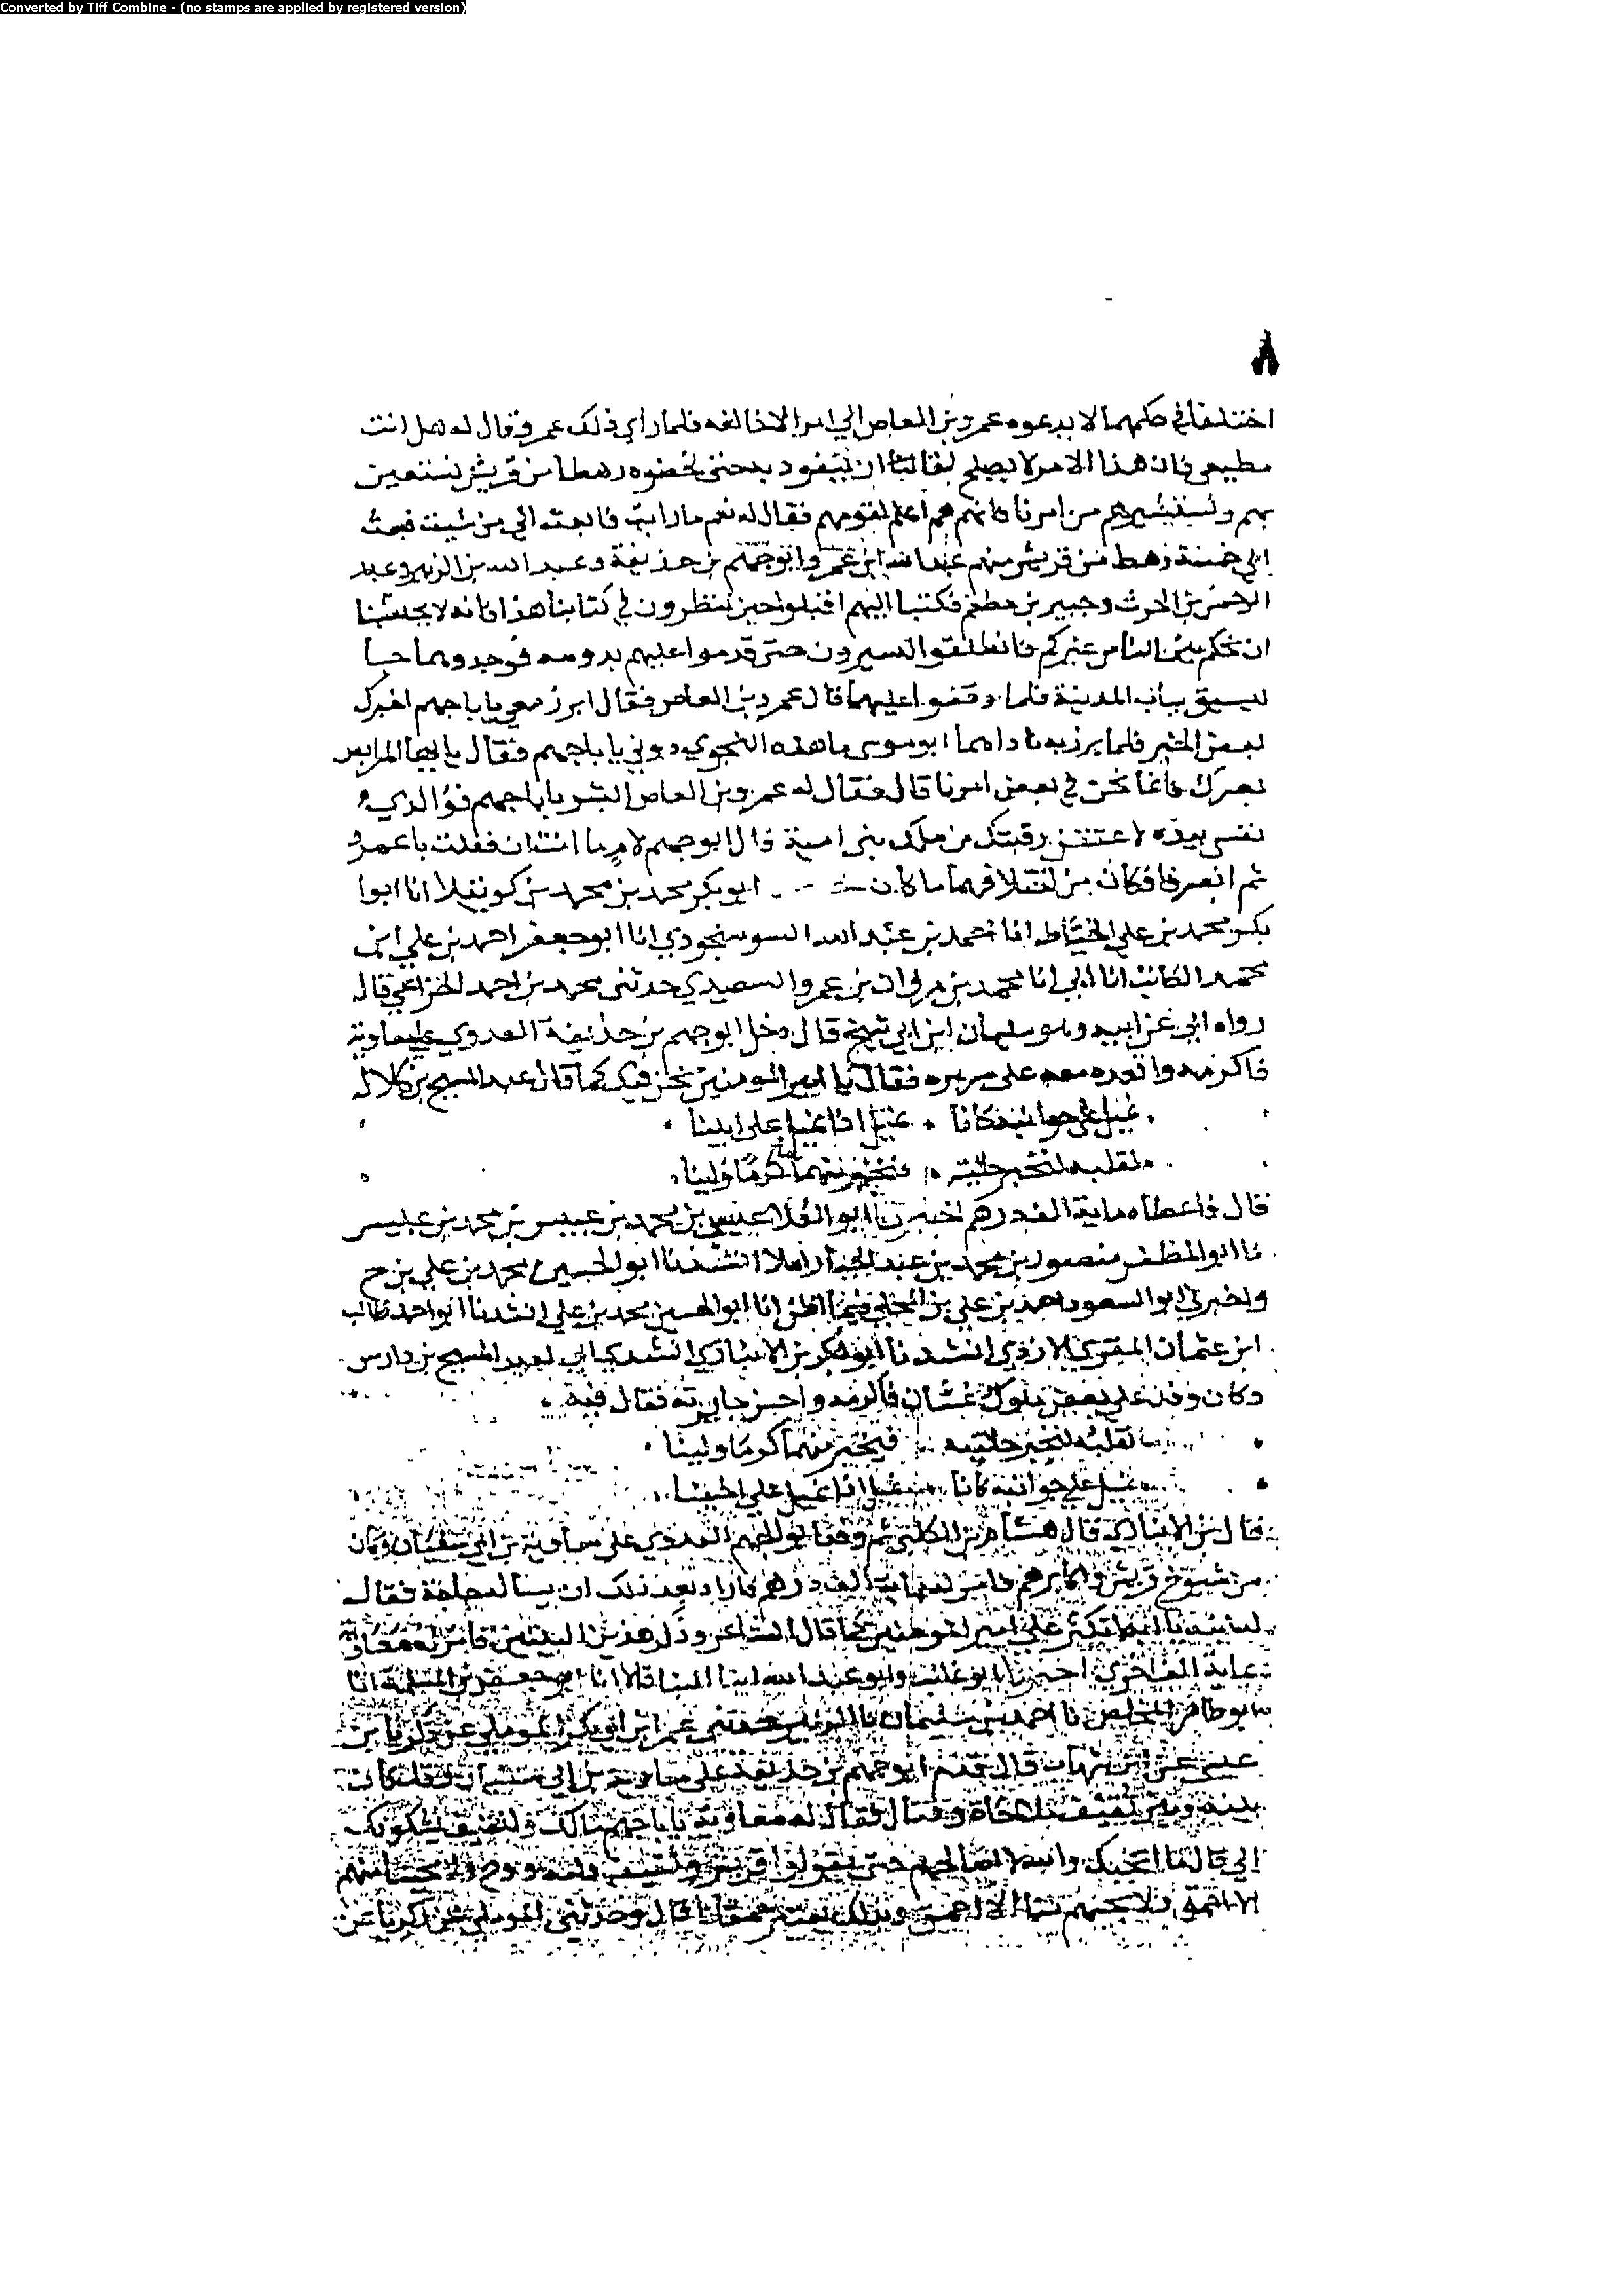 Converted by Tiff Combine - (no stamps are applied by registered version)
٨
اختلفا في حكمهما لا يدعوه عمرو بن العاص الي امر الا خالفه فلما راي ذلك عمرو قال له هل انت
مطيعي فان هذا الامر لا يصلح لنا ان ننفرد به حتى يحضره رهطا من قريش نستعين
بهم ونستشيرهم من امرنا فانهم هم اعلم بقومهم فقال له نعم ما رايت فابعث الي من شيت فبعث
الي خمسة رهط من قريش منهم عبد الله ابن عمر وابو جهم بن حذيفة وعبد الله بن الزبير وعبد
الرحمن بن الحرث وجبير بن مطعم فكتبا اليهم اقبلوا حين تنظرون في كتابنا هذا فانه لا يحبسنا
ان نحكم بين الناس غيركم فانطلقوا يسيرون حتى قدموا عليهم بدومه فوجدوهما
بباب المدينة فلما وقفوا عليهما قال عمرو بن العاص فقال ابرز معي يا با جهم اخبرك
بعض الخبر فلما برز به ناداهما ابو موسى ما هذه النجوي دوني يا با جهم فقال
نحن في بعض امرنا قال فقال له عمرو بن العاص ابشر يا با جهم فو الذي
نفسي بيده لاعتقن رقبتك من ملك بني امية قال ابو جهم لامر ما انتما فقلت يا عمرو
ثم انصرفا فكان من امرهما ما كان ابو بكر محمد بن محمد بن كرتيلا انا ابوا
بكر محمد بن علي الخياط انا احمد بن عبد الله السوسنجردي انا ابو جعفر احمد بن علي ابن
محمد الكاتب انا ابي انا محمد بن مروان بن عمرو السعيدي حدثني محمد بن احمد الخزاعي قال
رواه ابي عن ابيه وهو سليمان ابن ابي شيخ قال دخل ابو جهم بن حذيفة العدوي علي معاوية
فاكرمه واقعده معه على سريره فقال يا امير المومنين نحن فيك كما قال عبد المسيح بن كلاله
نميل على جوانبه كانا نميل اذا نميل على ابينا
نقلبه لنخبر حالتيه فنخبر منهما كرما ولينا
قال فاعطاه ماية الف درهم اخبرنا ابو العلا عيسى بن محمد بن عيسى بن محمد بن عيسى
نا ابو المظفر منصور بن محمد بن عبد الجبار املا انشدنا ابو الحسين محمد بن علي بن ح
واخبرني ابو السعود احمد بن علي بن المجلي فيما اظن انا ابو الحسين محمد بن علي انشدنا ابو احمد طالب
ابن عثمان المقري الازدي انشدنا ابو بكر بن الانباري انشدني ابي لعبد المسيح بن دارس
وكان وفد علي بعض ملوك غسان فاكرمه واحسن جايزته فقال فيه
نقلبه لنخبر حالتيه فيخبر منهما كرما ولينا
نميل علي جوانبه كانا نميل اذا نميل علي ابينا
قال بن الانباري قال هشام بن الكلبي ثم وفد ابو الجهم العدوي علي معاوية بن ابي سفيان وكان
من شيوخ قريش واكابرهم فامر له بماية الف درهم فاراد بعد ذلك ان يساله حاجة فقال
لا تكثر علي امير المومنين كما قال الشاعر وذكر هذين البيتين فامر له معاوية
بماية الف اخري اخبرنا ابو غالب وابو عبد الله ابنا البنا قالا انا ابو جعفر بن المسلمة انا
ابو طاهر المخلص نا احمد بن سليمان نا الزبير حدثني عمر ابن ابي بكر الموملي عن زكريا بن
عيسى عن ابن شهاب قال قدم ابو جهم بن حذيفة علي معاوية بن ابي سفيان وقد كانت
بينه وبين ثقيف ملاحاة وقتال فقال له معاوية يا با جهم مالك ولثقيف يشكونك
الي قال ما اعجبك والله لا اصالحهم حتى يقولوا قريش وثقيف
الا احمق ولا يحبهم منا الا احمق قال وحدثني الموملي عن زكريا عن